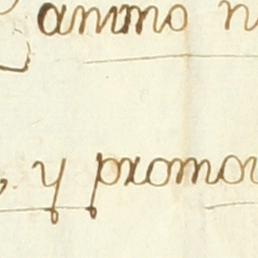 animo
y promov